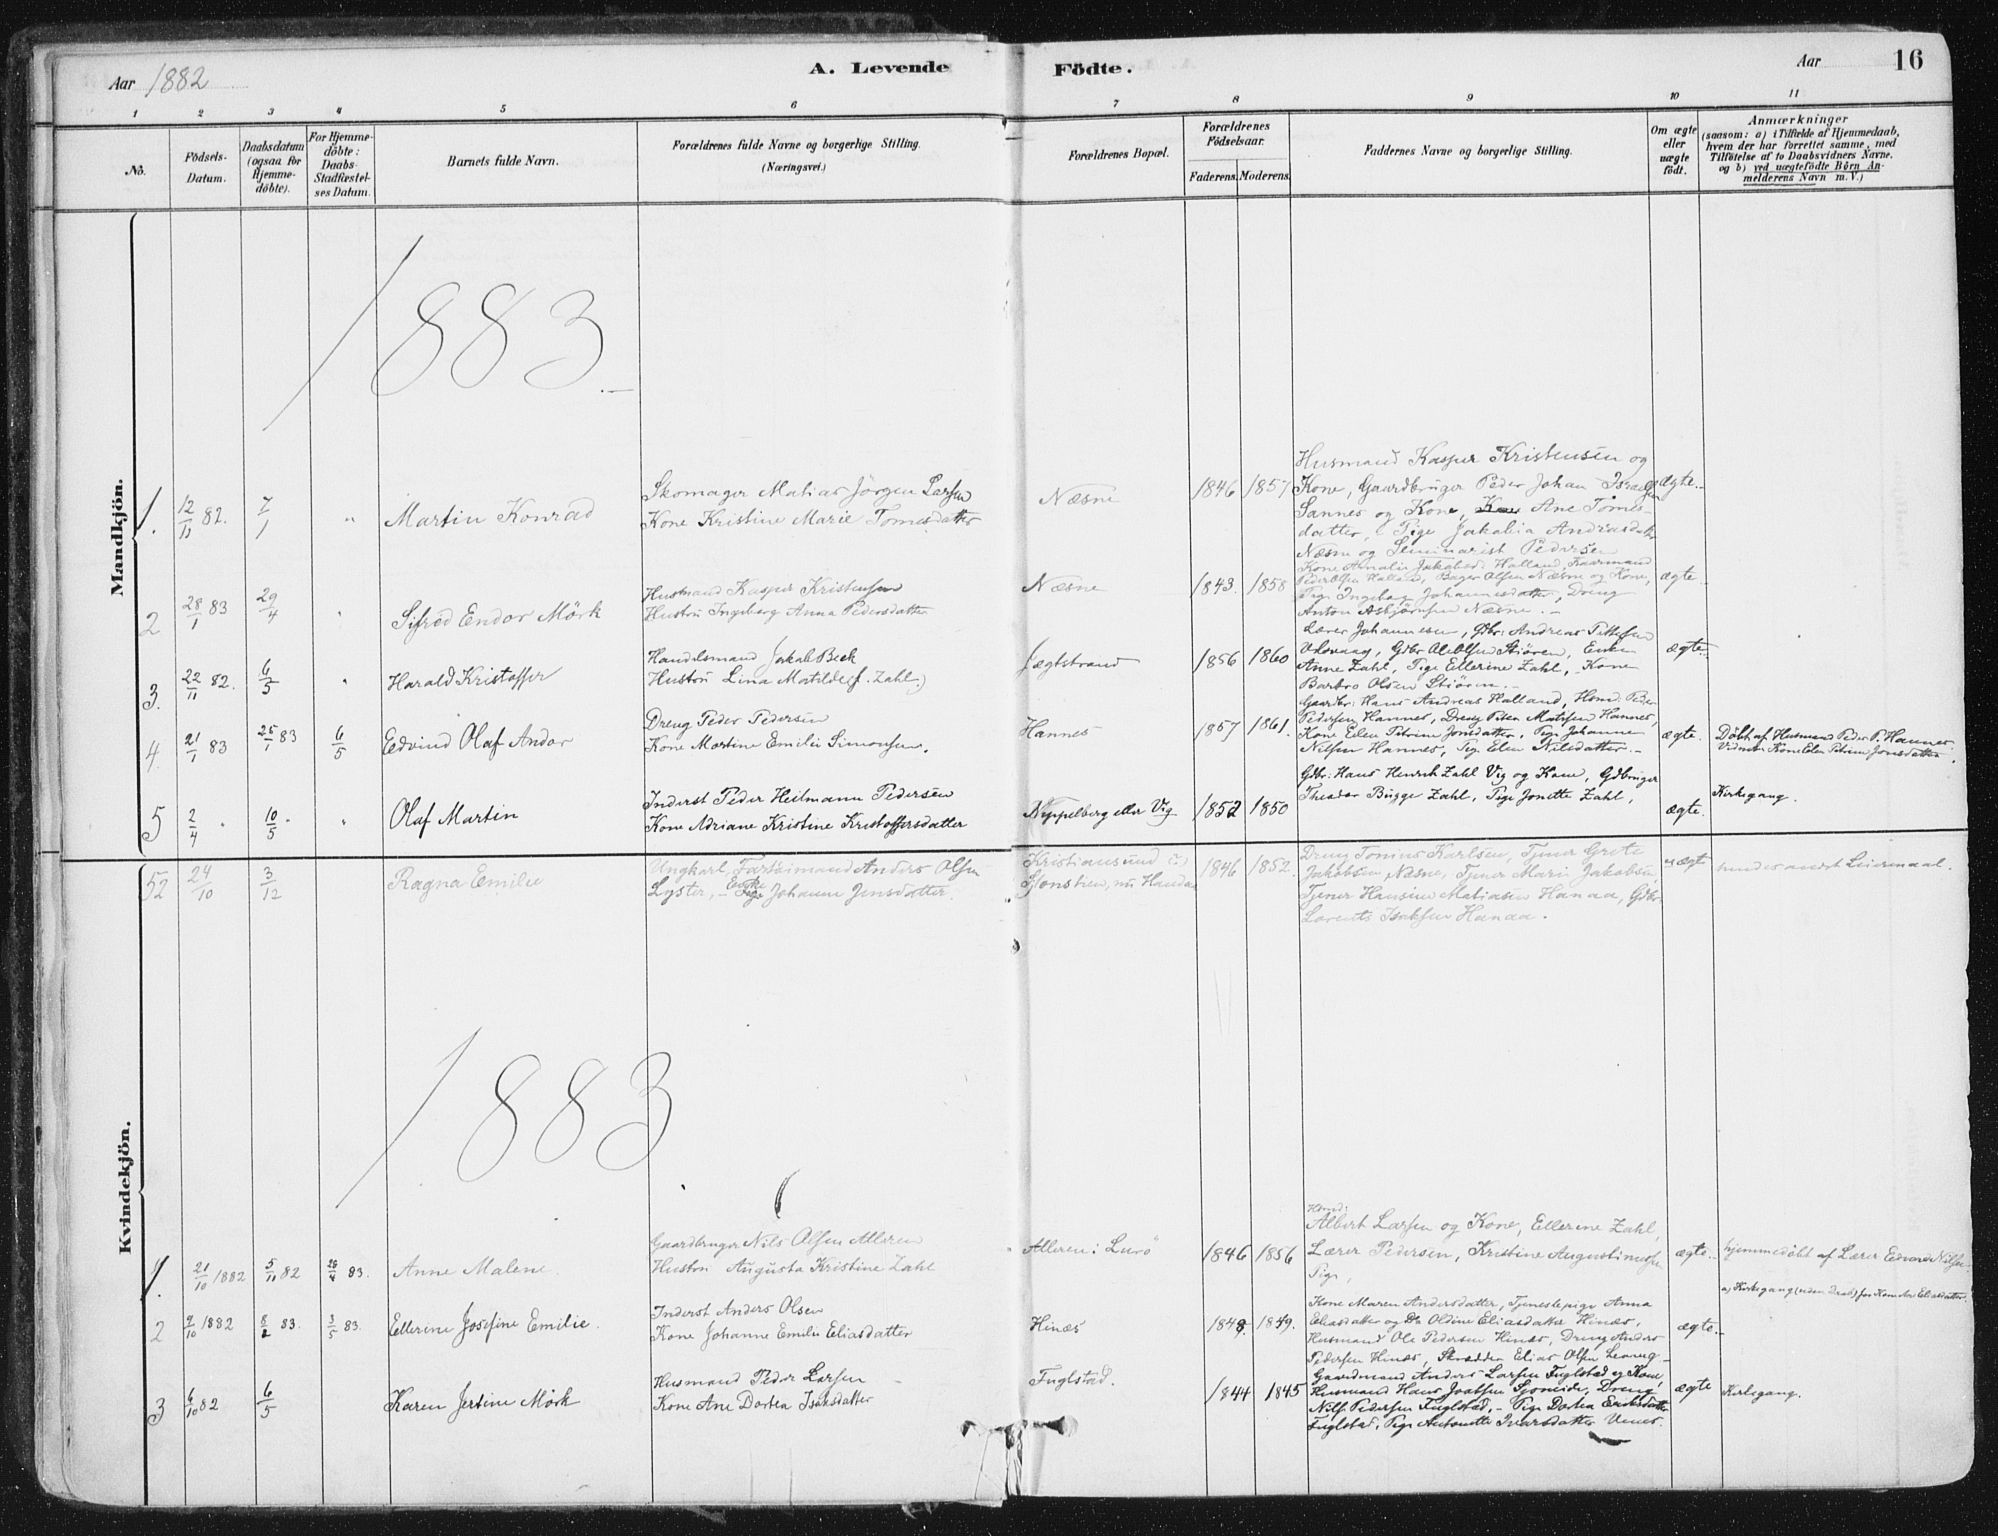 Aar 1882
A. Levende Födte.
Aar
16
1 2 3 4 5 6 7 8 9 10 11
No.
Födsels-
Datum.
Daabsdatum
(ogsaa for
Hjemme-
döbte).
For Hjemme-
döbte:
Daabs-
Stadfæstel-
ses Datum.
Barnets fulde Navn.
Forældrenes fulde Navne og borgerlige Stilling.
(Næringsvei.)
Forældrenes Bopæl.
Forældrenes
Födselsaar.
Faderens. Moderens.
Faddernes Navne og borgerlige Stilling.
Om ægte
eller
uægte
födt.
Anmærkninger
(saasom: a) i Tilfælde af Hjemmedaab,
hvem der har forrettet samme, med
Tilföielse af to Daabsvidners Navne,
og b) ved uægtefödte Börn An-
melderens Navn m. V.)
Mandkjön.
1883.
1. 12/11 82. 7/1 " Martin Konrad
Skomager Matias Jörgen Larsen
Kone Kristine Marie Tomesdatter
Næsne
1846 1857
Husmand Kasper Kristensen og
Kone, Gaardbruger Peder Johan Israelsen
Sannes og Kone, Ane Tomes-
datter, Pige Jakobia Andreasdatter
Næsne og Seminarist Pedersen
ægte.
2 28/1 83 29/4 " Sifred Endor Mörk
Husmand Kasper Kristensen
Hustru Ingeborg Anna Pedersdatter
Næsne
1843. 1858
Kone Amalie Jakobsd. Halland,
Peder Olsen Halland, Bager Olsen Næsne og Kone,
Pige Ingeborg Johannesdatter, Dreng
Anton Asbjörnsen Næsne.
ægte.
3. 22/11 82. 6/5 " Harald Kristoffer
Handelsmand Jakob Beck
Hustru Lina Matilde (f. Zahl.)
Jægtstrand
1856 1860
Lærer Johannesen, Gdbr: Andreas
Gdbr Ole Olsen Stiören, Enke
Anne Zahl, Pige Ellerine Zahl, Kone
Barbro Olsen Stiören.
ægte.
4. 21/1 83 25/1 83 6/5 Edvind Olaf Andor
Dreng Peder Pedersen
Kone Martine Emilie Simonsen.
Hannes
1857 1861.
Gaardbr: Hans Andreas Halland, Hsmd. Peder
Pedersen Hannes, Dreng Peter Matisen Hannes,
Kone Elen Petrine Jonsdatter, Pige Johanne
Nilsen Hannes, Pig. Elen Nilsdatter.
ægte.
Döbt af Husmand Peder P. Hannes
Vidner: Kone Elen Petrine Jonsdatter.
5 2/4 " 10/5 " " Olaf Martin
Inderst Peder Heilmann Pedersen
Kone Adriane Kristine Kristoffersdatter
Nippelberg eller Vig
1852 1850
Gdbr: Hans Henrik Zahl Vig og Kone, Gdbruger
Theodor Bugge Zahl, Pige Jonette Zahl,
ægte.
Kirkegang.
Kvindekjön.
52 24/10 3/12 Ragna Emilie
Ungkarl, Anders Olsen
Lyster, – Enke Johanne Jensdatter.
Kristiansund
nu Handnes
1846 1852.
Dreng Tomas Karlsen, Tjener Grete
Jakobsen Næsne, Tjener Marie Jakobsen
Tjener Hansine Matiasen Hanaa, Gdbr.
Lorents Isaksen Hanaa.
uægt
hendes andet Leiermaal.
1883
1. 21/10 1882 5/11 82 29/4 83. Anne Malene.
Gaardbruger Nils Olsen Alleren
Hustru Augusta Kristine Zahl
Alleren i Lurö
1846 1856
Hsmd:
Albert Larsen og Kone, Ellerine Zahl,
Lærer Pedersen, Kristine Augustinusen
Pige,
ægte.
hjemmedöbt af Lærer Edvard Nilsen.
2 9/10 1882 8/2 83. 3/5 83. Ellerine Josefine Emilie.
Inderst Anders Olsen
Kone Johanne Emilie Eliasdatter
Hinæs
1848. 1849.
Kone Maren Andersdatter, Tjenestepige Anna
Eliasdatter og Do Oldine Eliasdatter Hinæs,
Husmand Ole Pedersen Hinæs, Dreng Anders
Pedersen Hinæs, Skrædder Elias Olsen
ægte.
a) Kirkegang (uden Daab) for Kone Eliasdatter.
3 6/10 82 6/5 Karen Jertine Mörk
Husmand Peder Larsen
Kone Ane Dortea Isaksdatter
Fuglstad.
1844 1845
Gaardmand Anders Larsen Fuglstad og Kone,
Husmand Hans Joabsen Sjoneide, Dreng
Nils Pedersen Fuglstad, – Pige Dortea Eriksdatter
Fuglstad, Pige Antonette Ivarsdatter
ægte
Kirkegang.